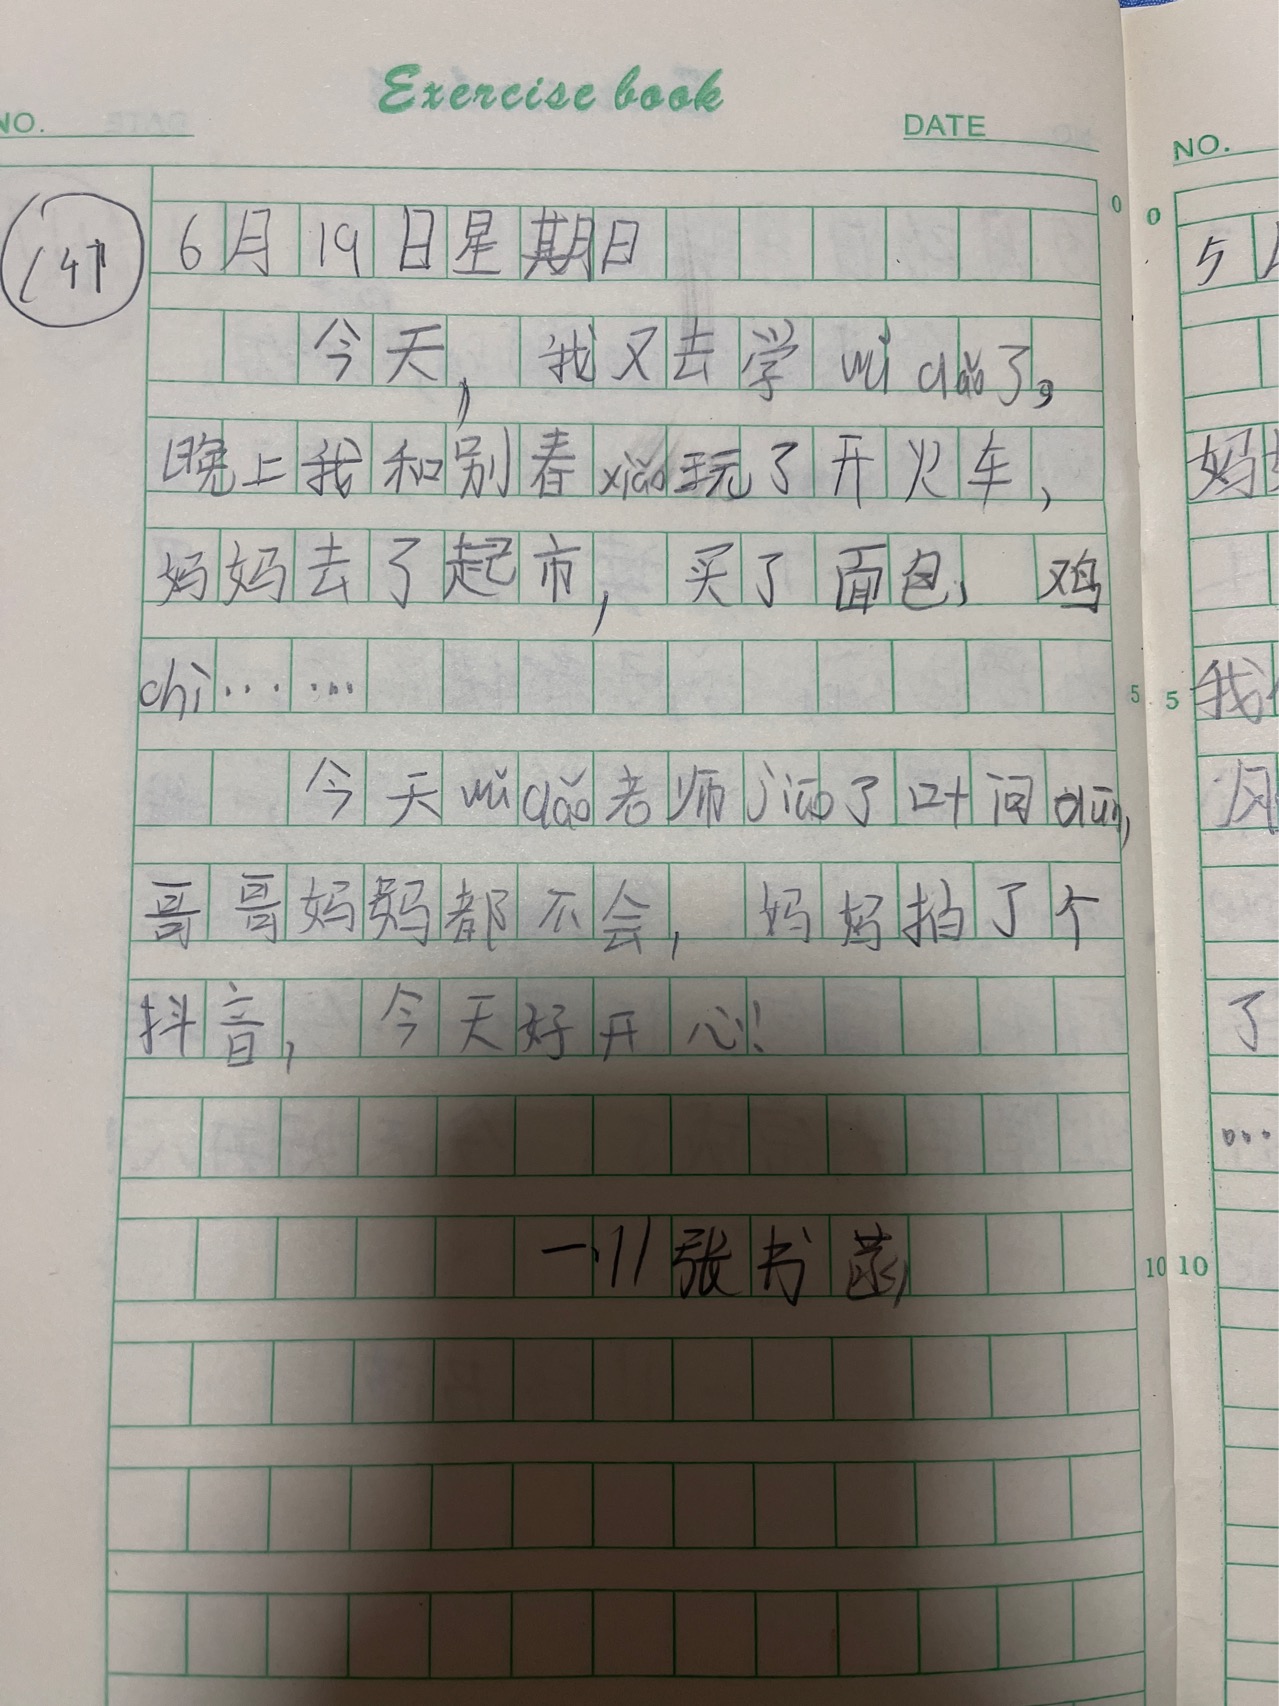 Exercise book
NO.
DATE
6月19日星期日
今天，我又去学wǔ dǎo了，
晚上我和别春xiǎo玩了开火车，
妈妈去了起市，买了面包、鸡
chì……
今天wǔ dǎo老师jiāo了叶问dūn，
哥哥妈妈都不会，妈妈拍了个
抖音，今天好开心！
一.11张书菡
0
5
10
NO.
0
5
妈妈
5
我
风
了
…
10